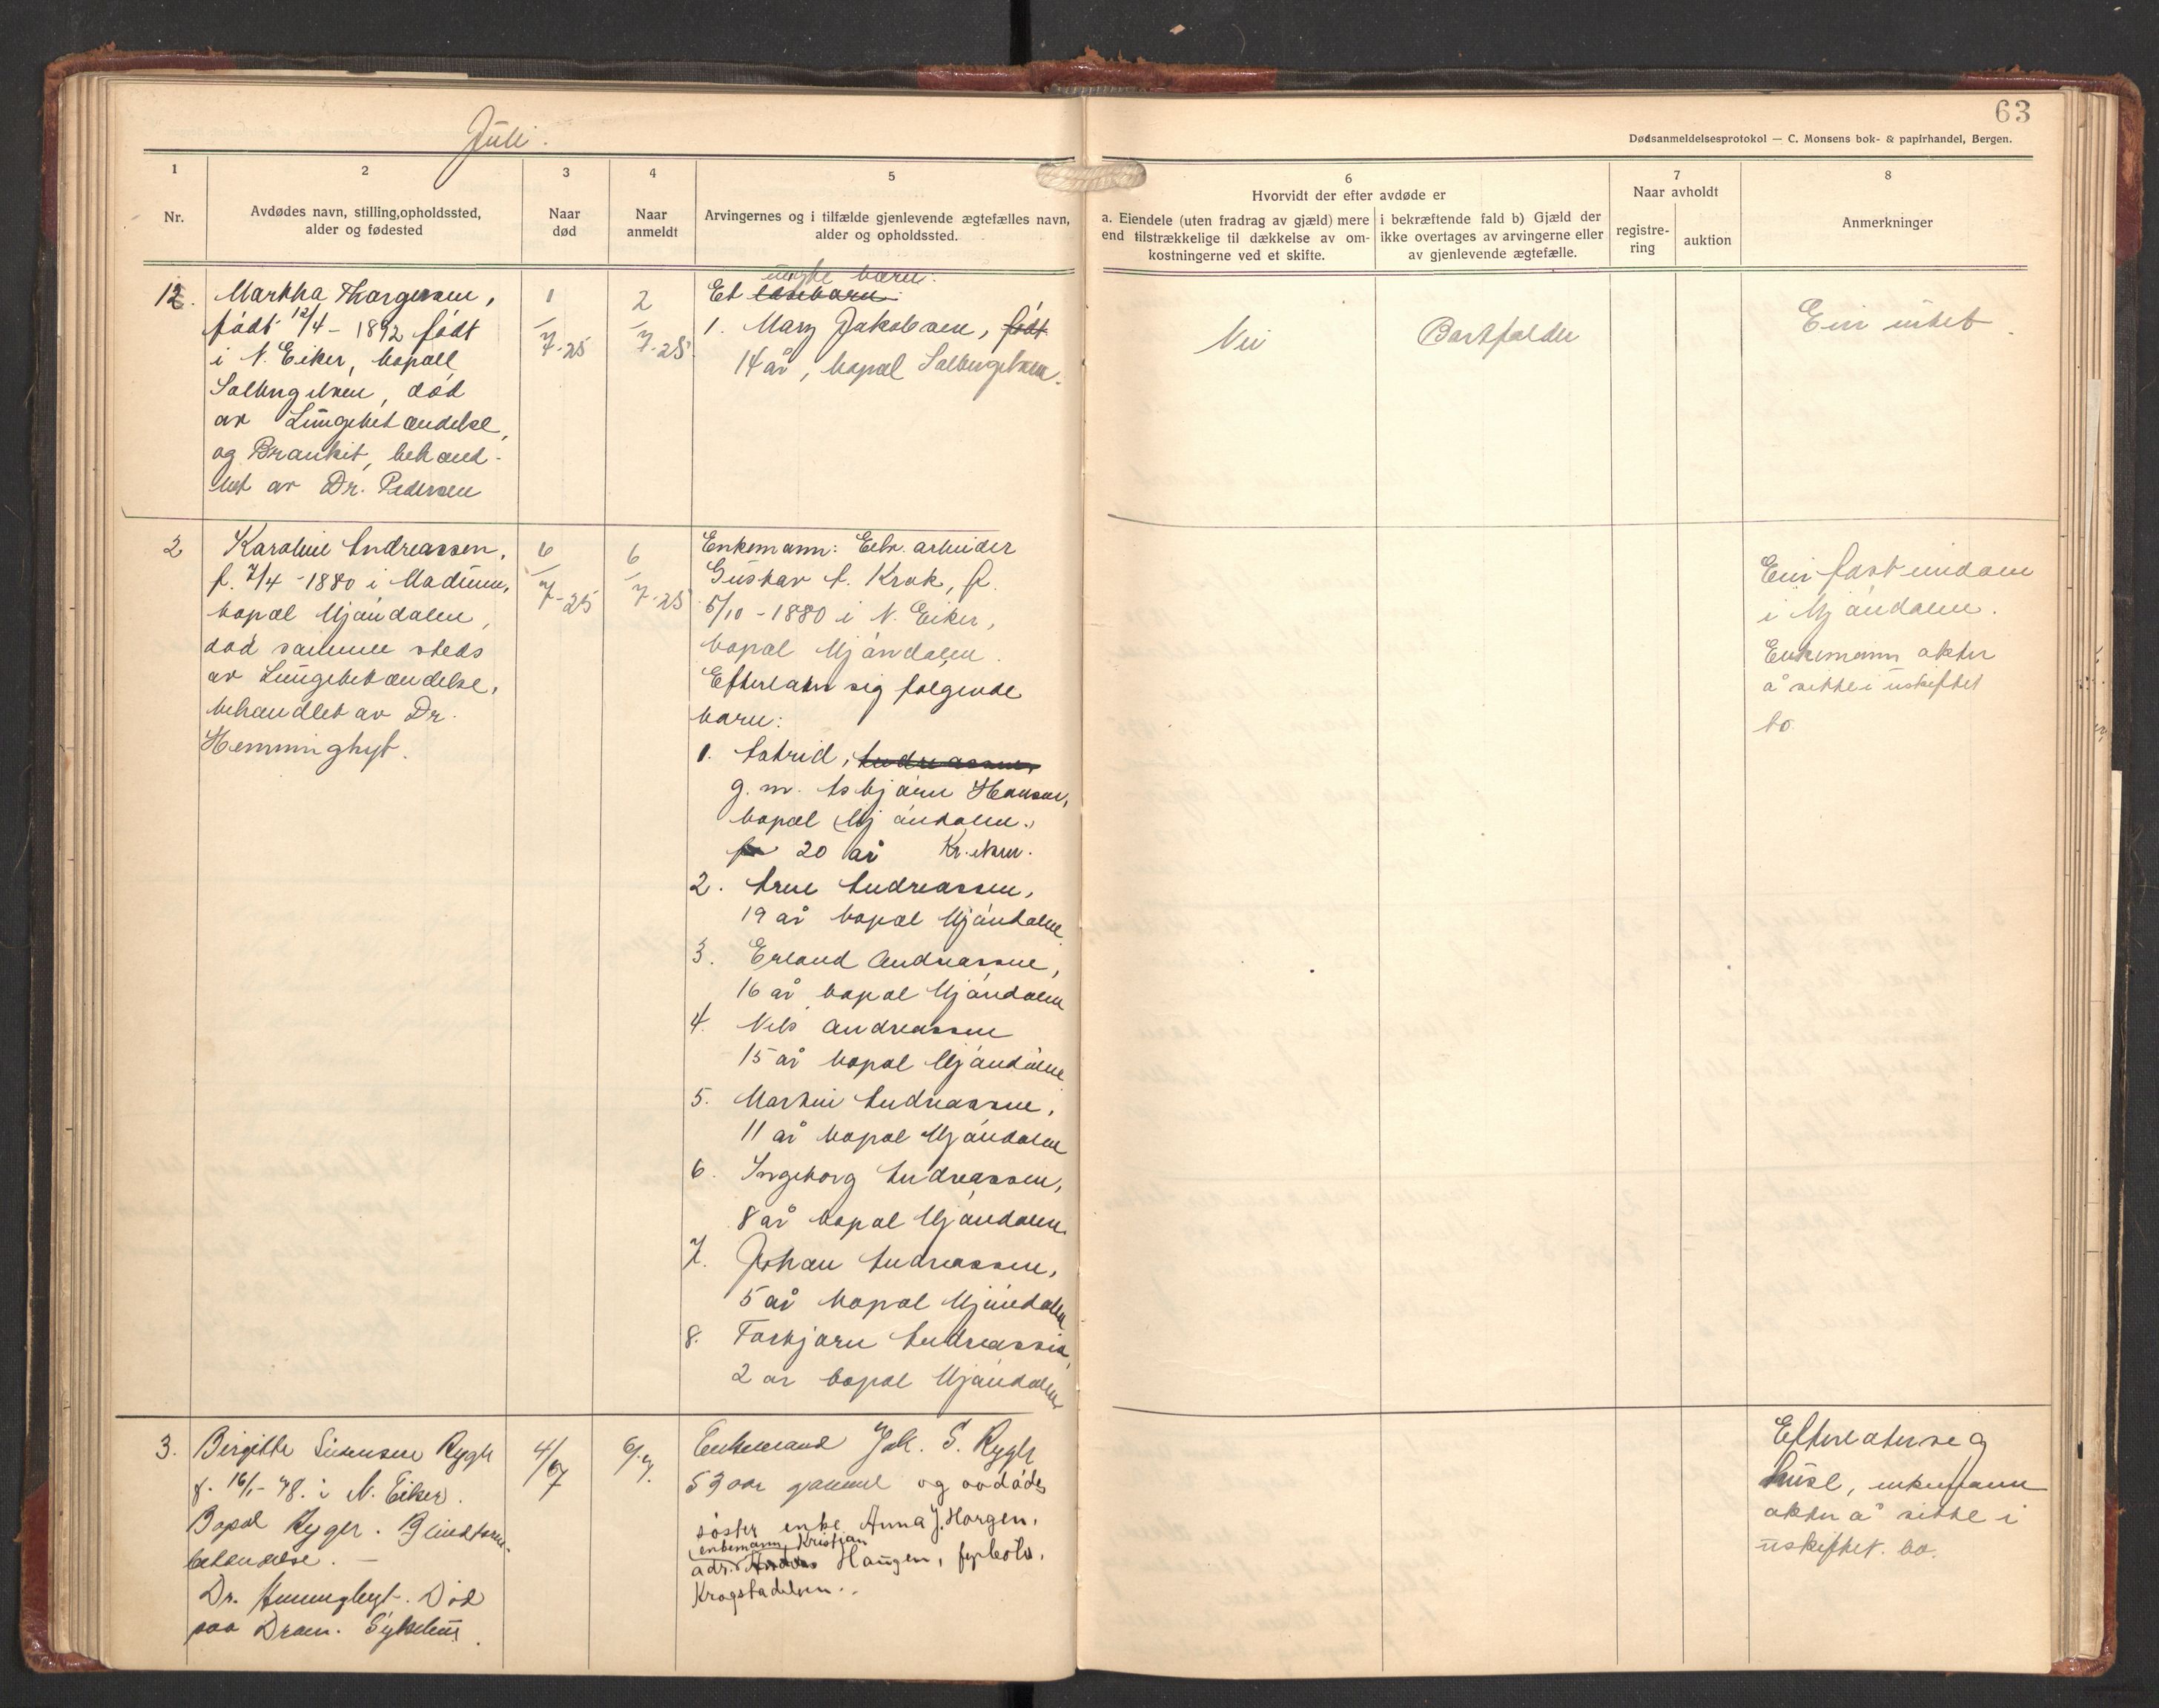 63
Dødsanmeldelsesprotokol — C. Monsens bok- & papirhandel, Bergen.
Juli.
1
Nr.
2
Avdødes navn, stilling,opholdssted,
alder og fødested
3
Naar
død
4
Naar
anmeldt
5
Arvingernes og i tilfælde gjenlevende ægtefælles navn,
alder og opholdssted.
6
Hvorvidt der efter avdøde er
a. Eiendele (uten fradrag av gjæld) mere
end tilstrækkelige til dækkelse av om-
kostningerne ved et skifte.
i bekræftende fald b) Gjæld der
ikke overtages av arvingerne eller
av gjenlevende ægtefælle.
7
Naar avholdt
registre-
ring
auktion
8
Anmerkninger
1.
Martha Thorgersen,
født 12/4 - 1892 født
i N. Eiker, bopæll
Solbergelven, død
av Lungebetændelse,
og Bronkit, behand-
let av Dr. Pedersen
1/7-25
2/7-25
uegte barn.
Et
1. Mary Jakobsen, født
14 år, bopæl Solbergelven.
Nei
Bortfalder
Eier intet.
2
Karoline Andreassen,
f. 7/4 - 1880 i Modum,
bopæl Mjøndalen,
død samme steds
av Lungebetændelse,
behandlet av Dr.
Hemminghyt.
6/7-25
6/7-25
Enkemann: Celr. arbeider
Gustav A. Krok, f.
5/10 - 1880 i N. Eiker,
bopæl Mjøndalen.
Efterlater sig følgende
barn:
1. Astrid, Andreassen,
g. m. Asbjørn Hansen,
bopæl Mjøndalen.
20 år Kr. elven.
2. Arne Andreassen,
19 år bopæl Mjøndalen
3. Erland Andreassen,
16 år bopæl Mjøndalen
4. Nils Andreassen
15 år bopæl Mjøndalen
5. Martin Andreassen,
11 år bopæl Mjøndalen
6. Ingeborg Andreassen,
8 år bopæl Mjøndalen
7. Johan Andreassen,
5 år bopæl Mjøndalen
8. Torbjørn Andreassen,
2 år bopæl Mjøndalen
Eier fast eiendom
i Mjøndalen.
Enkemann akter
å sitte i uskiftet
bo.
3.
Birgitte Simensen Rygh
f. 16/1 - 78. i N. Eiker.
Bopæl Rygh. Blindtarm-
betendelse. —
Dr. Hemminghyt. Død
paa Dram. Sykehus.
4/7
6/7.
Enkemand Jak. S. Rygh
53 aar gammel og avdødes
søster enke Anna J. Horgen.
enkemann, Kristian
adr. Haugen,
Krogstadelven..
Efterlater seg
husl, enkemann
akter å sitte i
uskiftet. bo.